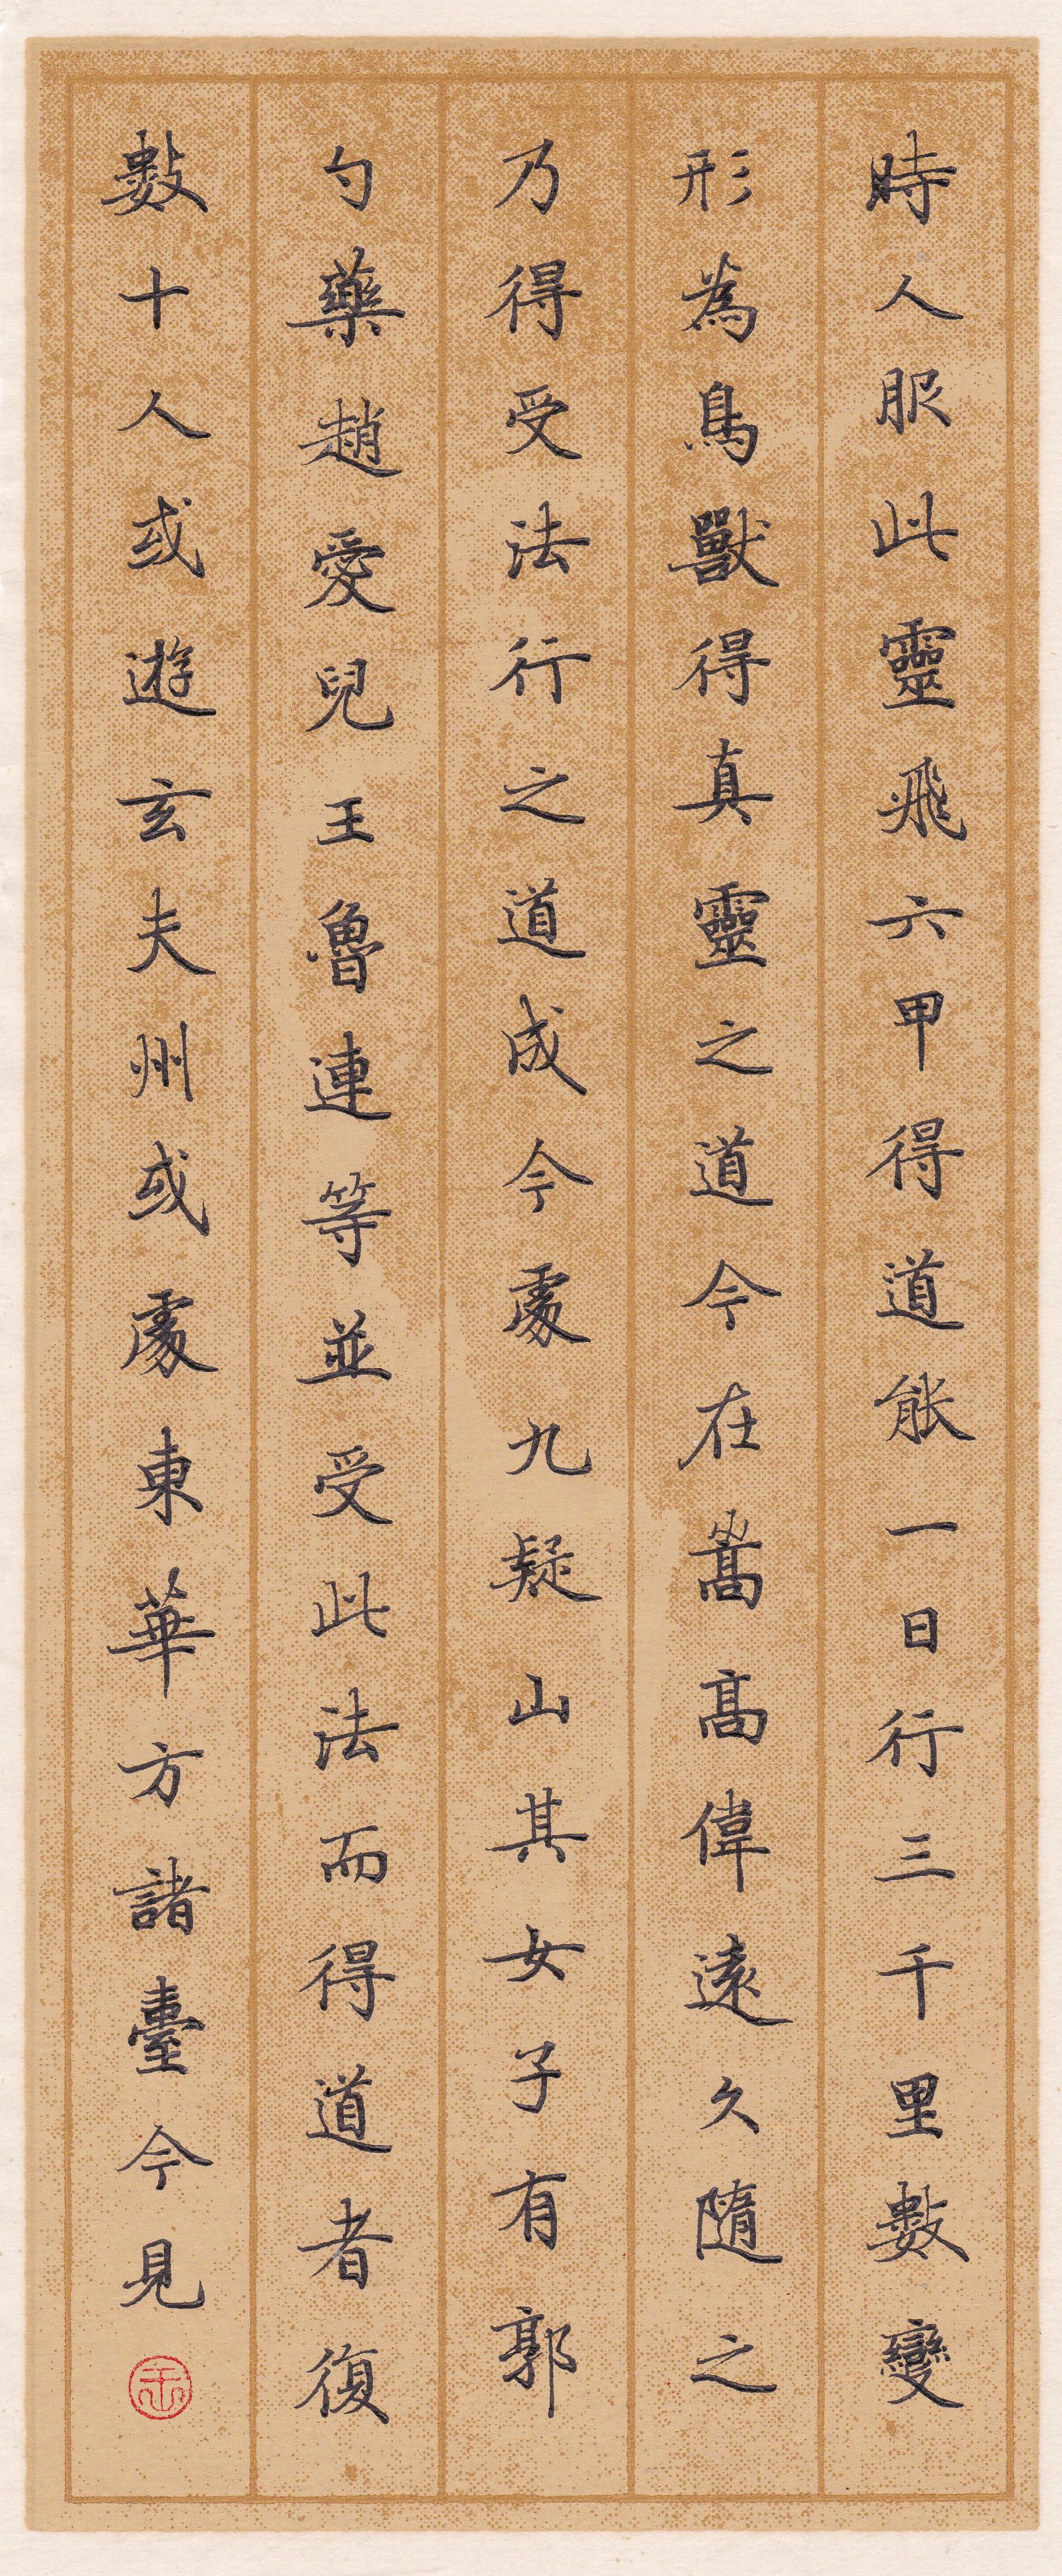 時人服此靈飛六甲得道能一日行三千里數變
形為鳥獸得真靈之道今在嵩高偉遠久隨之
乃得受法行之道成今處九疑山其女子有郭
勺藥趙愛兒王魯連等並受此法而得道者復
數十人或遊玄夫州或處東華方諸臺今見